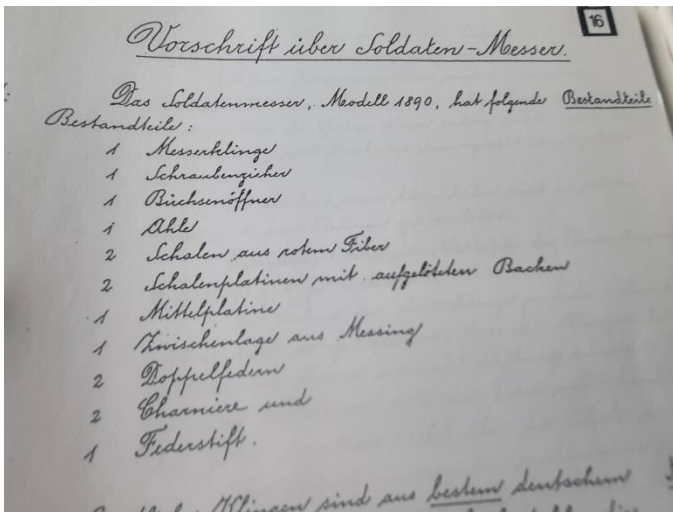 16
Vorschrift über Soldaten-Messer.
Das Soldatenmesser, Modell 1890, hat folgende Bestandteile
Bestandteile:
1 Messerklinge
1 Schraubenzieher
1 Büchsenöffner
1 Ahle
2 Schalen aus rotem Fiber
2 Schalenplatinen mit aufgelöteten Backen
1 Mittelplatine
1 Zwischenlage aus Messing
2 Doppelfedern
2 Charniere und
1 Federstift.
Klingen sind aus bestem deutschem